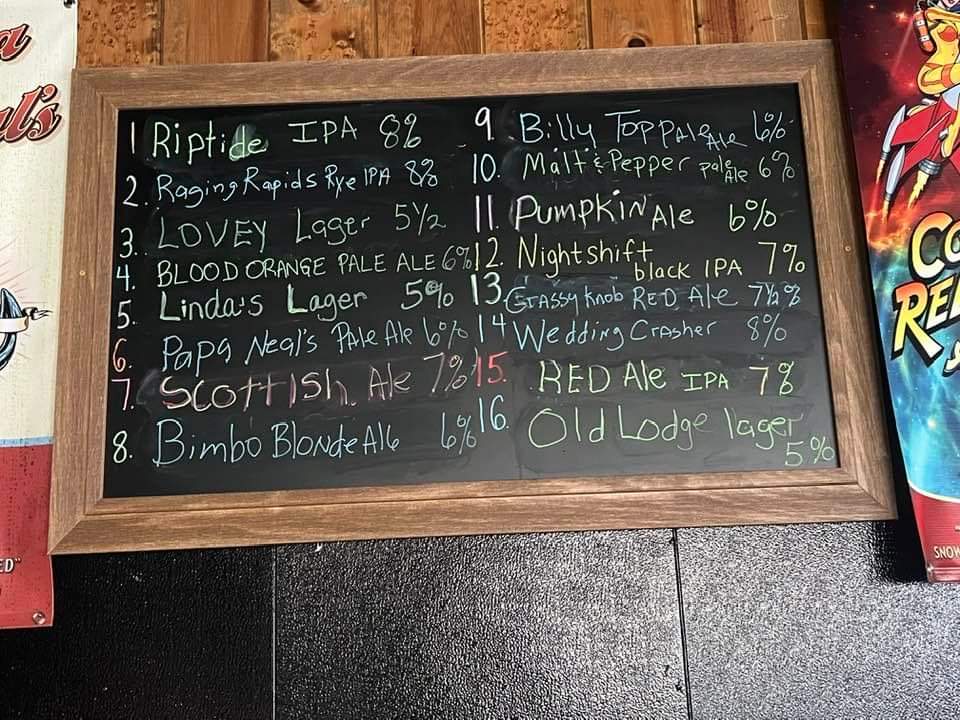 1 Riptide IPA 8%
2. Raging Rapids Rye IPA 8%
3. LOVEY Lager 5½
4. BLOOD ORANGE PALE ALE 6%
5. Linda's Lager 5%
6. Papa Neal's PALE Ale 6%
7. SCOTTISH Ale 7%
8. Bimbo BlondeAle 6%
9 Billy Top Pale Ale 6%
10. Malt & Pepper pale Ale 6%
11. PUMPKIN Ale 6%
12. Nightshift
black IPA 7%
13. Grassy Knob RED Ale 7½%
14 Wedding Crasher 8%
15. RED Ale IPA 7%
16. Old Lodge lager
5%
a
l's
ED"
CO
REL
SNOW